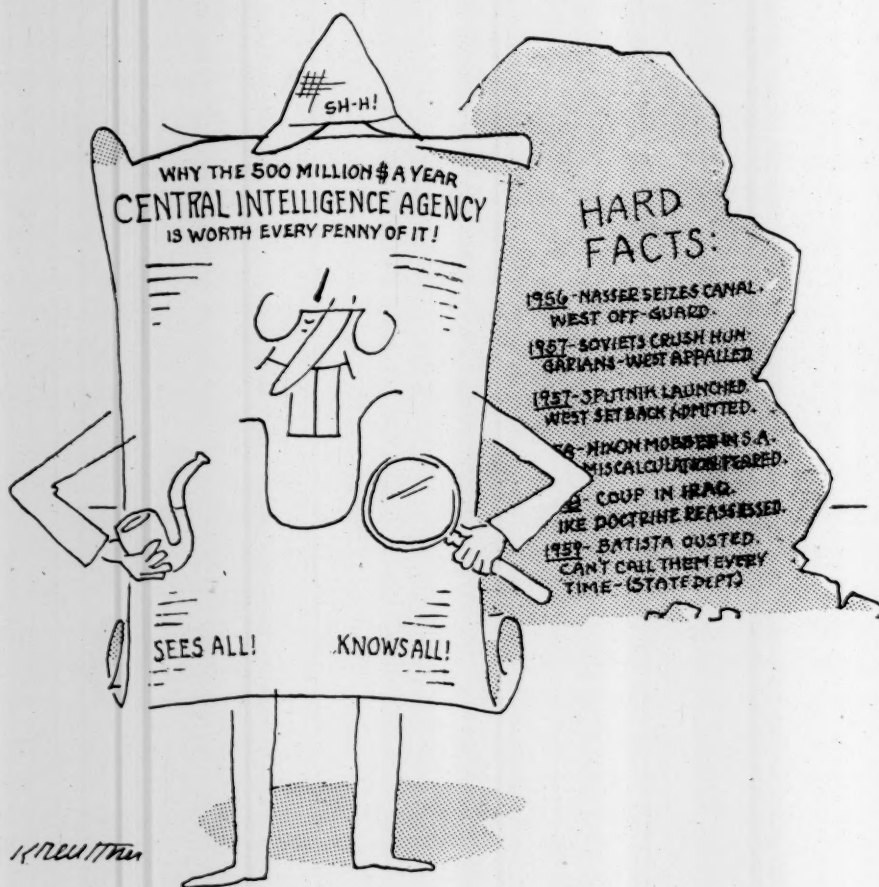 SH-H!
WHY THE 500 MILLION $ A YEAR
CENTRAL INTELLIGENCE AGENCY
IS WORTH EVERY PENNY OF IT!
SEES ALL! KNOWS ALL!
HARD
FACTS:
1956-NASSER SEIZES CANAL.
WEST OFF-GUARD.
1957-SOVIETS CRUSH HUN-
GARIANS-WEST APPALLED
1957-SPUTNIK LAUNCHED
WEST SET BACK ADMITTED.
-NIXON MOBBED IN S.A.
MISCALCULATION FEARED.
COUP IN IRAQ.
IKE DOCTRINE REASSESSED.
1959- BATISTA OUSTED.
CAN'T CALL THEM EVERY
TIME-(STATE DEPT)